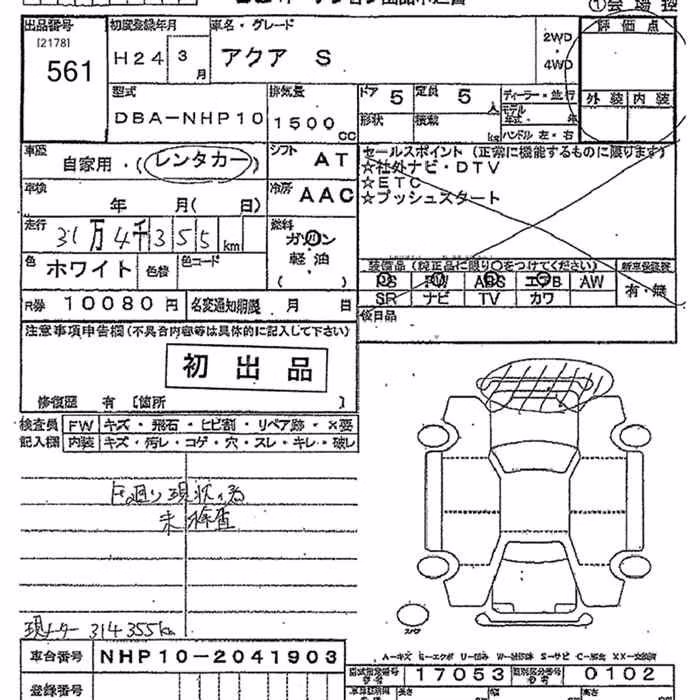 ①会場控
出品番号 初度登録年月 車名・グレード 評価点
[2178] 561
H24 3月 アクア S 2WD・4WD
型式 排気量 ドア 5 定員 5人 ディーラー・並行 外装 内装
DBA-NHP10 1500cc 形状 積載 kg モデル年式・年
ハンドル 左・右
車歴 自家用・(レンタカー) シフト AT セールスポイント (正常に機能するものに限ります)
☆社外ナビ・DTV
☆ETC
☆プッシュスタート
車検 年 月(日) 冷房 AAC
走行 31万4千355km 燃料 ガソリン 軽油 ( )
色 ホワイト 色替 色コード
装備品 (純正品に限り○をつけてください) 新車保証書
PS PW ABS エアB AW 有・無
SR ナビ TV カワ
R券 10080円 名変通知期限 月 日 後日品
注意事項申告欄(不具合内容等は具体的に記入して下さい)
初出品
修復歴 有 [箇所 ]
検査員 FW キズ・飛石・ヒビ割・リペア跡・×要
記入欄 内装 キズ・汚レ・コゲ・穴・スレ・キレ・破レ
下廻り現状の為
未検査
現メーター 314355km
スペア
A-キズ E-エクボ U-凹み W-補修跡 S-サビ C-腐食 XX-交換済
車台番号 NHP10-2041903
型式指定番号 17053 類別区分番号 0102
登録番号 長さ 幅 高さ